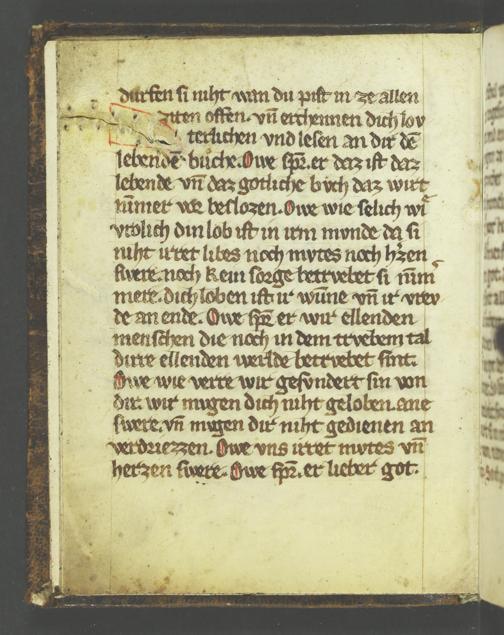 durfen si niht wan du pist in ze allen
ziten offen. vn̄ erchennen dich lov
terlichen vnd lesen an dir dē
lebendē bůche. Owe spꝛ. er daz ist daz
lebende vn̄ daz gotliche bv̊ch daz wirt
nim̄er we beslozen. Owe wie selich vn̄
vrolich din lob ist in irm mvnde da si
niht irret libes noch mvtes noch h'zen
swere. noch kein sorge betrvebet si nim̄
mere. dich loben ist ir wūne vn̄ ir vrev
de an ende. Owe spꝛ er wir ellenden
menschen die noch in dem trvebem tal
dirre ellenden werlde betrvebet sint.
Owe wie verre wir gesvndert sin von
dir. wir mvgen dich niht geloben. ane
swere. vn̄ mvgen dir niht gedienen an
verdriezzen. Owe vns irret mvtes vn̄
herzen swere. Owe spꝛ. er lieber got.